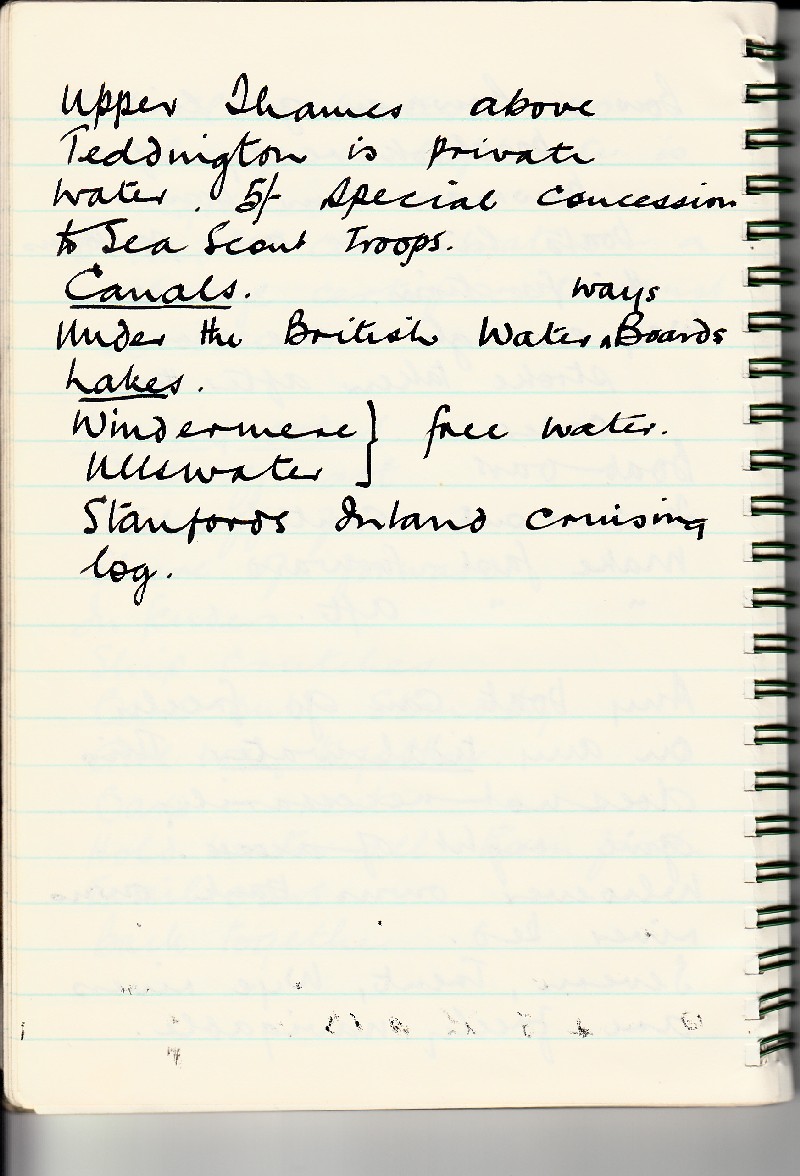 Upper Thames above
Teddington is private
water. 5/- special concession
to Sea Scout Troops.
Canals.
Under the British Water ways Boards
Lakes.
Windermere } free water.
Ullswater
Stanfords Inland cruising
log.